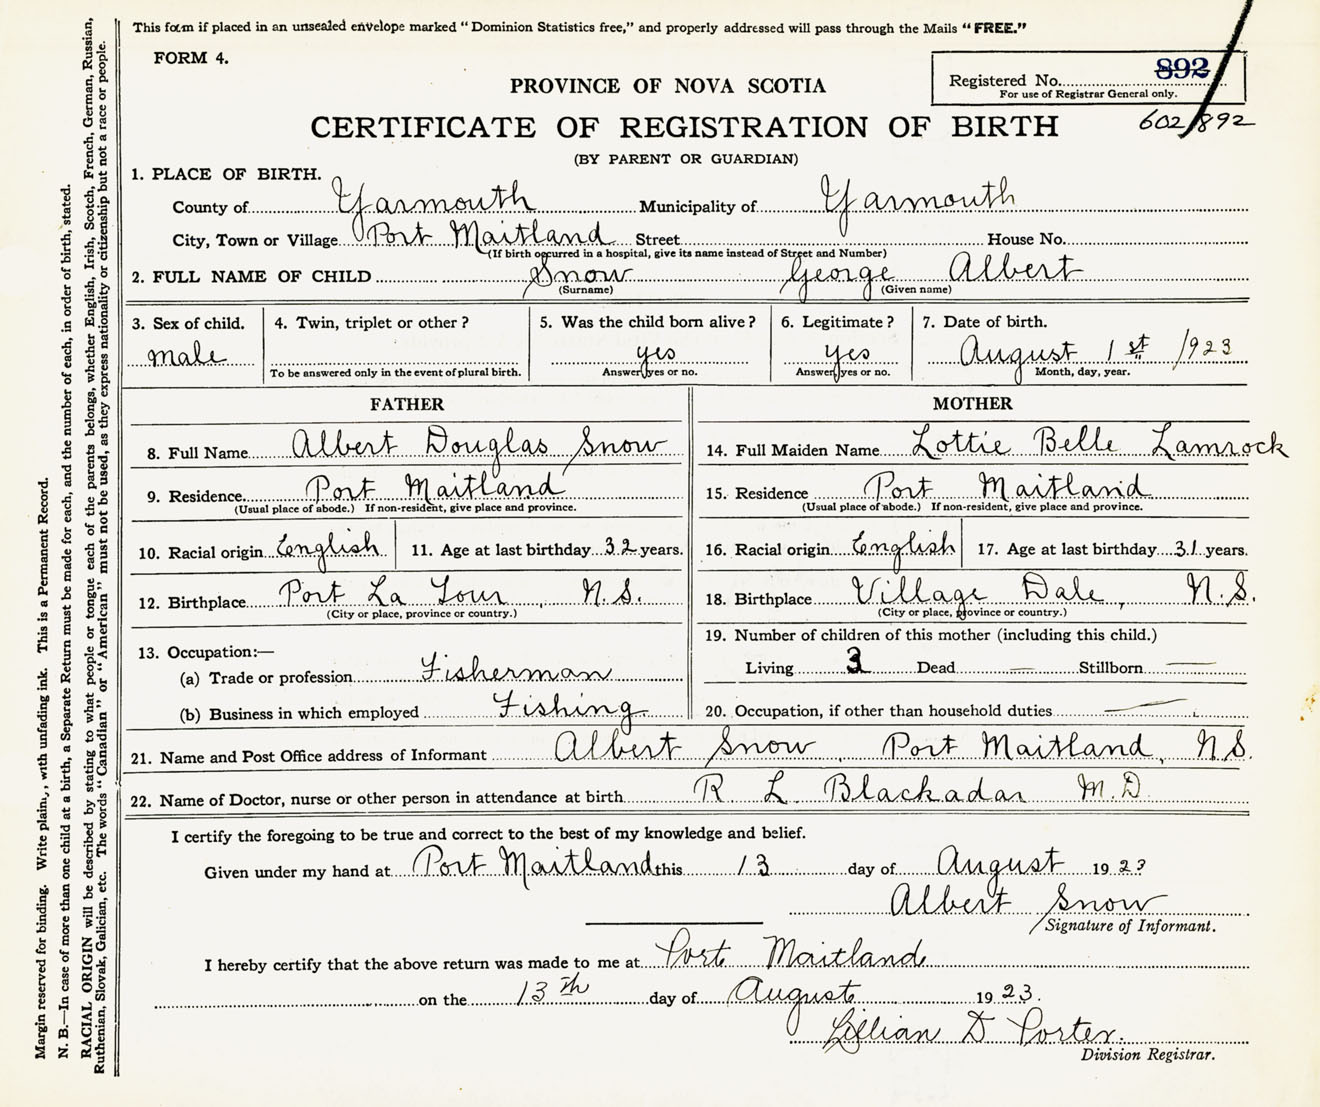 This form if placed in an unsealed envelope marked "Dominion Statistics free," and properly addressed will pass through the Mails "FREE."
FORM 4.
Registered No. 892
For use of Registrar General only.
602/892
PROVINCE OF NOVA SCOTIA
CERTIFICATE OF REGISTRATION OF BIRTH
(BY PARENT OR GUARDIAN)
1. PLACE OF BIRTH.
County of Yarmouth Municipality of Yarmouth
City, Town or Village Port Maitland Street House No.
(If birth occurred in a hospital, give its name instead of Street and Number)
2. FULL NAME OF CHILD Snow George Albert
(Surname) (Given name)
3. Sex of child. 4. Twin, triplet or other? 5. Was the child born alive? 6. Legitimate? 7. Date of birth.
male yes yes August 1st 1923
To be answered only in the event of plural birth. Answer yes or no. Answer yes or no. Month, day, year.
FATHER
8. Full Name Albert Douglas Snow
9. Residence Port Maitland
(Usual place of abode.) If non-resident, give place and province.
10. Racial origin English 11. Age at last birthday 32 years.
12. Birthplace Port La Tour, N.S.
(City or place, province or country.)
13. Occupation:—
(a) Trade or profession Fisherman
(b) Business in which employed Fishing
MOTHER
14. Full Maiden Name Lottie Belle Lamrock
15. Residence Port Maitland
(Usual place of abode.) If non-resident, give place and province.
16. Racial origin English 17. Age at last birthday 31 years.
18. Birthplace Village Dale, N.S.
(City or place, province or country.)
19. Number of children of this mother (including this child.)
Living 3 Dead — Stillborn —
20. Occupation, if other than household duties —
21. Name and Post Office address of Informant Albert Snow, Port Maitland, N.S.
22. Name of Doctor, nurse or other person in attendance at birth R L Blackadar M.D.
I certify the foregoing to be true and correct to the best of my knowledge and belief.
Given under my hand at Port Maitland this 13 day of August 1923
Albert Snow
Signature of Informant.
I hereby certify that the above return was made to me at Port Maitland
on the 13th day of August 1923.
Lillian D Porter.
Division Registrar.
Margin reserved for binding. Write plain,, with unfading ink. This is a Permanent Record.
N. B.—In case of more than one child at a birth, a Separate Return must be made for each, and the number of each, in order of birth, stated.
RACIAL ORIGIN will be described by stating to what people or tongue each of the parents belongs, whether English, Irish, Scotch, French, German, Russian,
Ruthenian, Slovak, Galician, etc. The words "Canadian" or "American" must not be used, as they express nationality or citizenship but not a race or people.